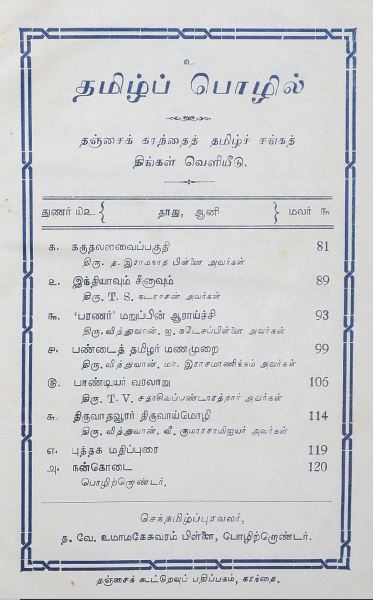 உ
தமிழ்ப் பொழில்
தஞ்சைக் கரந்தைத் தமிழ்ச் சங்கத்
திங்கள் வெளியீடு.
துணர் ௰௨. { தாது, ஆனி } மலர் ௩
௧. கருதலளவைப்பகுதி 81
திரு. த. இராமநாத பிள்ளை அவர்கள்
௨. இந்தியாவும் சீனாவும் 89
திரு. T. S. நடராசன் அவர்கள்
௩. ‘பரணர்’ மறுப்பின் ஆராய்ச்சி 93
திரு. வித்துவான். ஐ. நடேசப்பிள்ளை அவர்கள்
௪. பண்டைத் தமிழர் மணமுறை 99
திரு. வித்துவான். மா. இராசமாணிக்கம் அவர்கள்
௫. பாண்டியர் வரலாறு 106
திரு. T. V. சதாசிவப்பண்டாரத்தார் அவர்கள்
௬. திருவாதவூரர் திருவாய்மொழி 114
திரு. வித்துவான். வீ. குமாரசாமிஐயர் அவர்கள்
௭. புத்தக மதிப்புரை 119
௮. நன்கொடை 120
பொழிற்றொண்டர்.
செந்தமிழ்ப்புரவலர்,
த. வே. உமாமகேசுவரம் பிள்ளை, பொழிற்றொண்டர்.
தஞ்சைக் கூட்டுறவுப் பதிப்பகம், கரந்தை.